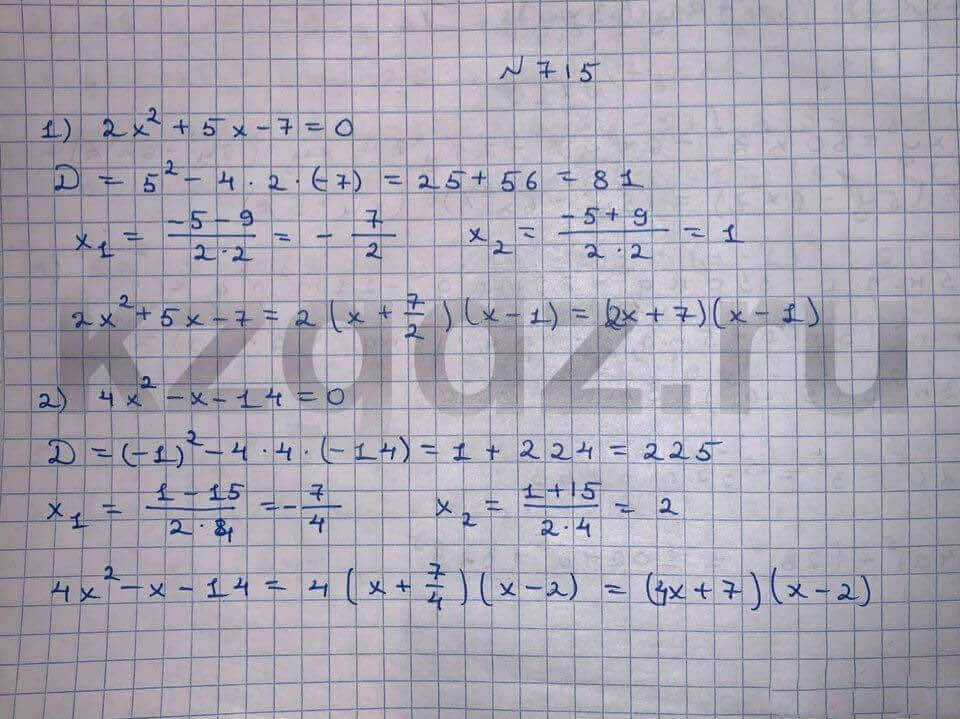 №715
1) 2x² + 5x - 7 = 0
D = 5² - 4 · 2 · (-7) = 25 + 56 = 81
x₁ = (-5 - 9)/(2 · 2) = - 7/2    x₂ = (-5 + 9)/(2 · 2) = 1
2x² + 5x - 7 = 2 (x + 7/2) (x - 1) = (2x + 7)(x - 1)
kzgdz.ru
2) 4x² - x - 14 = 0
D = (-1)² - 4 · 4 · (-14) = 1 + 224 = 225
x₁ = (1 - 15)/(2 · 4) = - 7/4    x₂ = (1 + 15)/(2 · 4) = 2
4x² - x - 14 = 4 (x + 7/4) (x - 2) = (4x + 7)(x - 2)